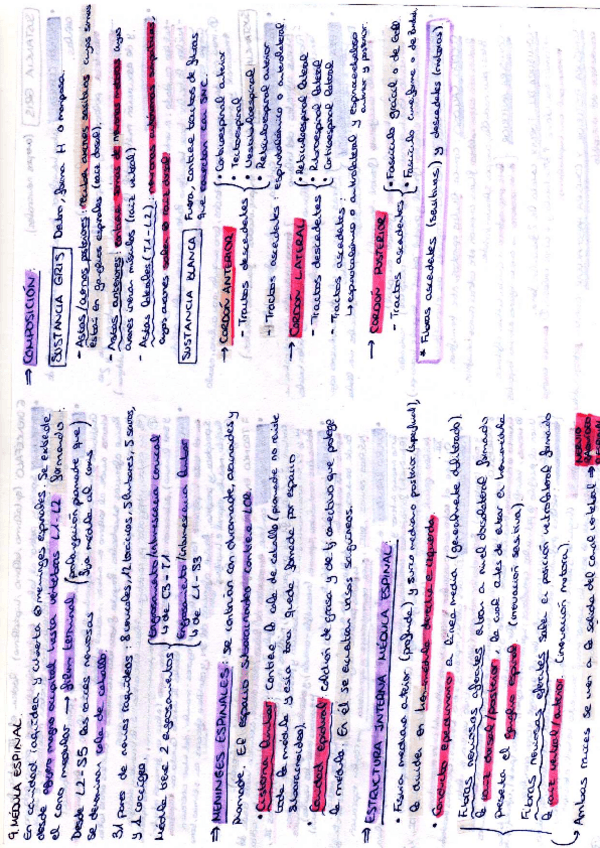 9. MÉDULA ESPINAL
En cavidad raquídea y cubierta x meninges espinales. Se extiende
desde agujero magno occipital hasta vértebras L1-L2 formando
el cono medular → filum terminal (prolongación piamadre que
fija médula al coxis)
Desde L2-S5 las raíces nerviosas
se denominan cola de caballo
31 pares de nervios raquídeos: 8 cervicales, 12 torácicos, 5 lumbares, 5 sacros,
y 1 coccígeo
Médula tiene 2 engrosamientos
Engrosamiento/intumescencia cervical
↳ de C3-T1
Engrosamiento/intumescencia lumbar
↳ de L1-S3
⇒ MENINGES ESPINALES: se continúan con duramadre aracnoides y
piamadre. El espacio subaracnoideo contiene LCR.
• Cisterna lumbar: contiene la cola de caballo (piamadre no reviste
toda la médula y esta zona queda formada por espacio
subaracnoideo).
• Cavidad epidural: colchón de grasa y de tj conectivo que protege
la médula. En él se encuentran vasos sanguíneos.
⇒ ESTRUCTURA INTERNA MÉDULA ESPINAL:
• Fisura mediana anterior (profunda) y surco mediano posterior (superficial),
la dividen en hemimédula derecha e izquierda.
• Conducto ependimario en línea media (generalmente obliterado).
Fibras nerviosas aferentes entran a nivel dorsolateral formando
la raíz dorsal/posterior, la cual antes de entrar en hemimédula
presenta el ganglio espinal (inervación sensitiva)
Fibras nerviosas eferentes salen en posición ventrolateral formando
la raíz ventral/anterior (inervación motora).
↳ Ambas raíces se unen a la salida del canal vertebral ⇒ NERVIO
RAQUÍDEO
⇒ COMPOSICIÓN:
SUSTANCIA GRIS Dentro, forma H o mariposa.
- Astas/cuernos posteriores: reciben axones sensitivos cuyos somas
están en ganglios espinales (raíz dorsal).
- Astas anteriores: contiene somas de neuronas motoras cuyos
axones inervan músculos (raíz ventral)
- Astas laterales (T1-L2): neuronas autónomas simpáticas,
cuyos axones salen x raíz
SUSTANCIA BLANCA Fuera, contiene tractos de fibras
que conectan con SNC.
→ CORDÓN ANTERIOR
- Tractos descendentes
• Corticoespinal anterior
• Tectoespinal
• Vestibuloespinal
• Reticuloespinal anterior
- Tractos ascendentes: espinotalámico o anterolateral
→ CORDÓN LATERAL
- Tractos descendentes
• Reticuloespinal lateral
• Rubroespinal lateral
• Corticoespinal lateral
- Tractos ascendentes:
↳ espinotalámico o anterolateral y espinocerebeloso
anterior y posterior.
→ CORDÓN POSTERIOR
- Tractos ascendentes
• Fascículo grácil o de Goll
• Fascículo cuneiforme o de Burdach
* Fibras ascendentes (sensitivas) y descendentes (motoras).